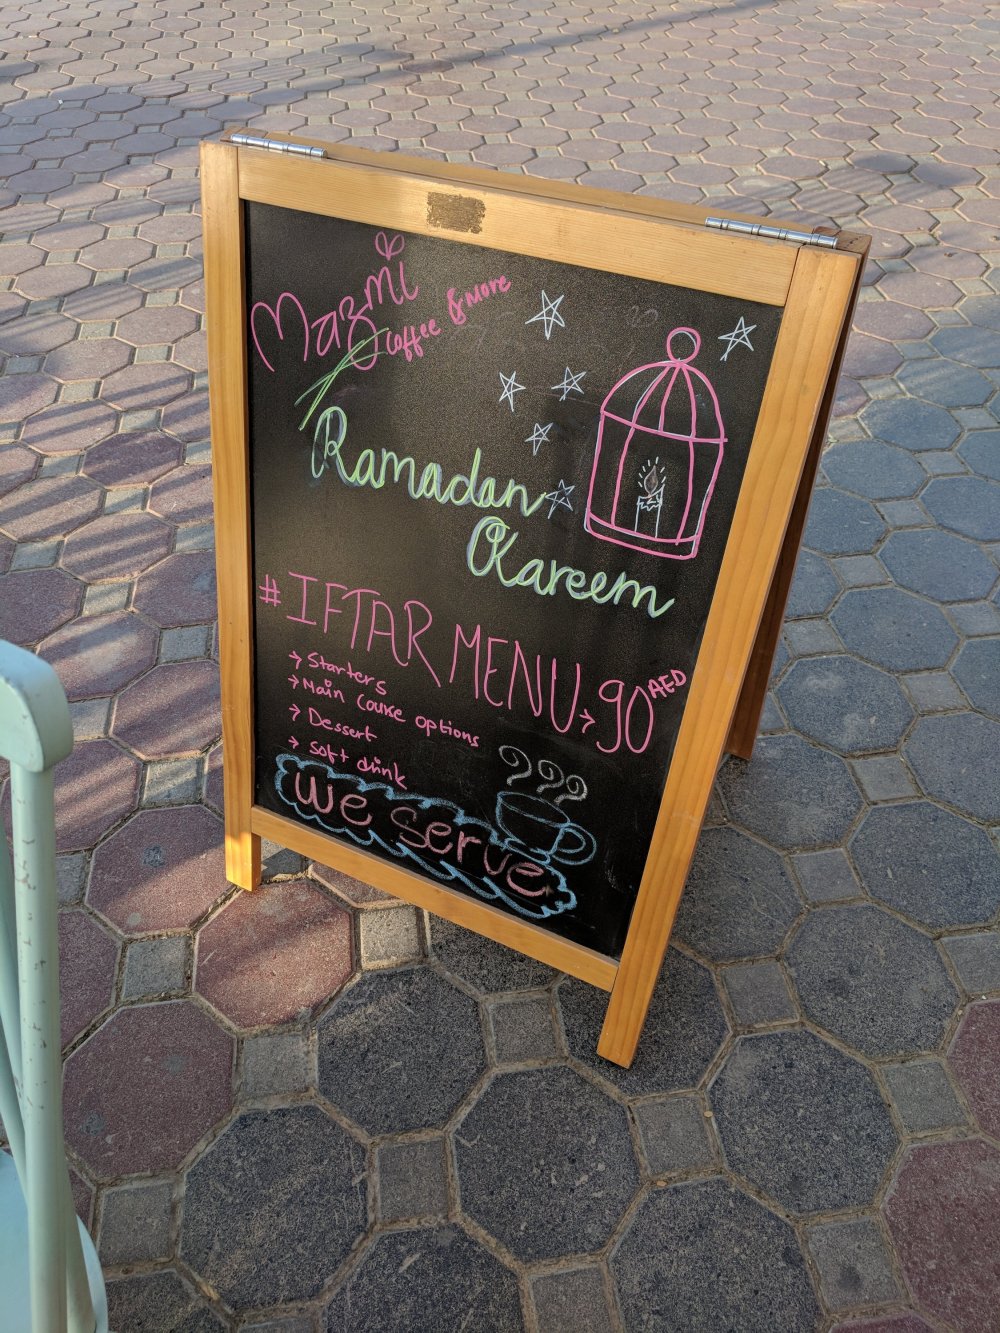 Mazmi
Coffee & More
Ramadan
Kareem
# IFTAR MENU → 90 AED
→ Starters
→ Main Course options
→ Dessert
→ Soft drink
We Serve